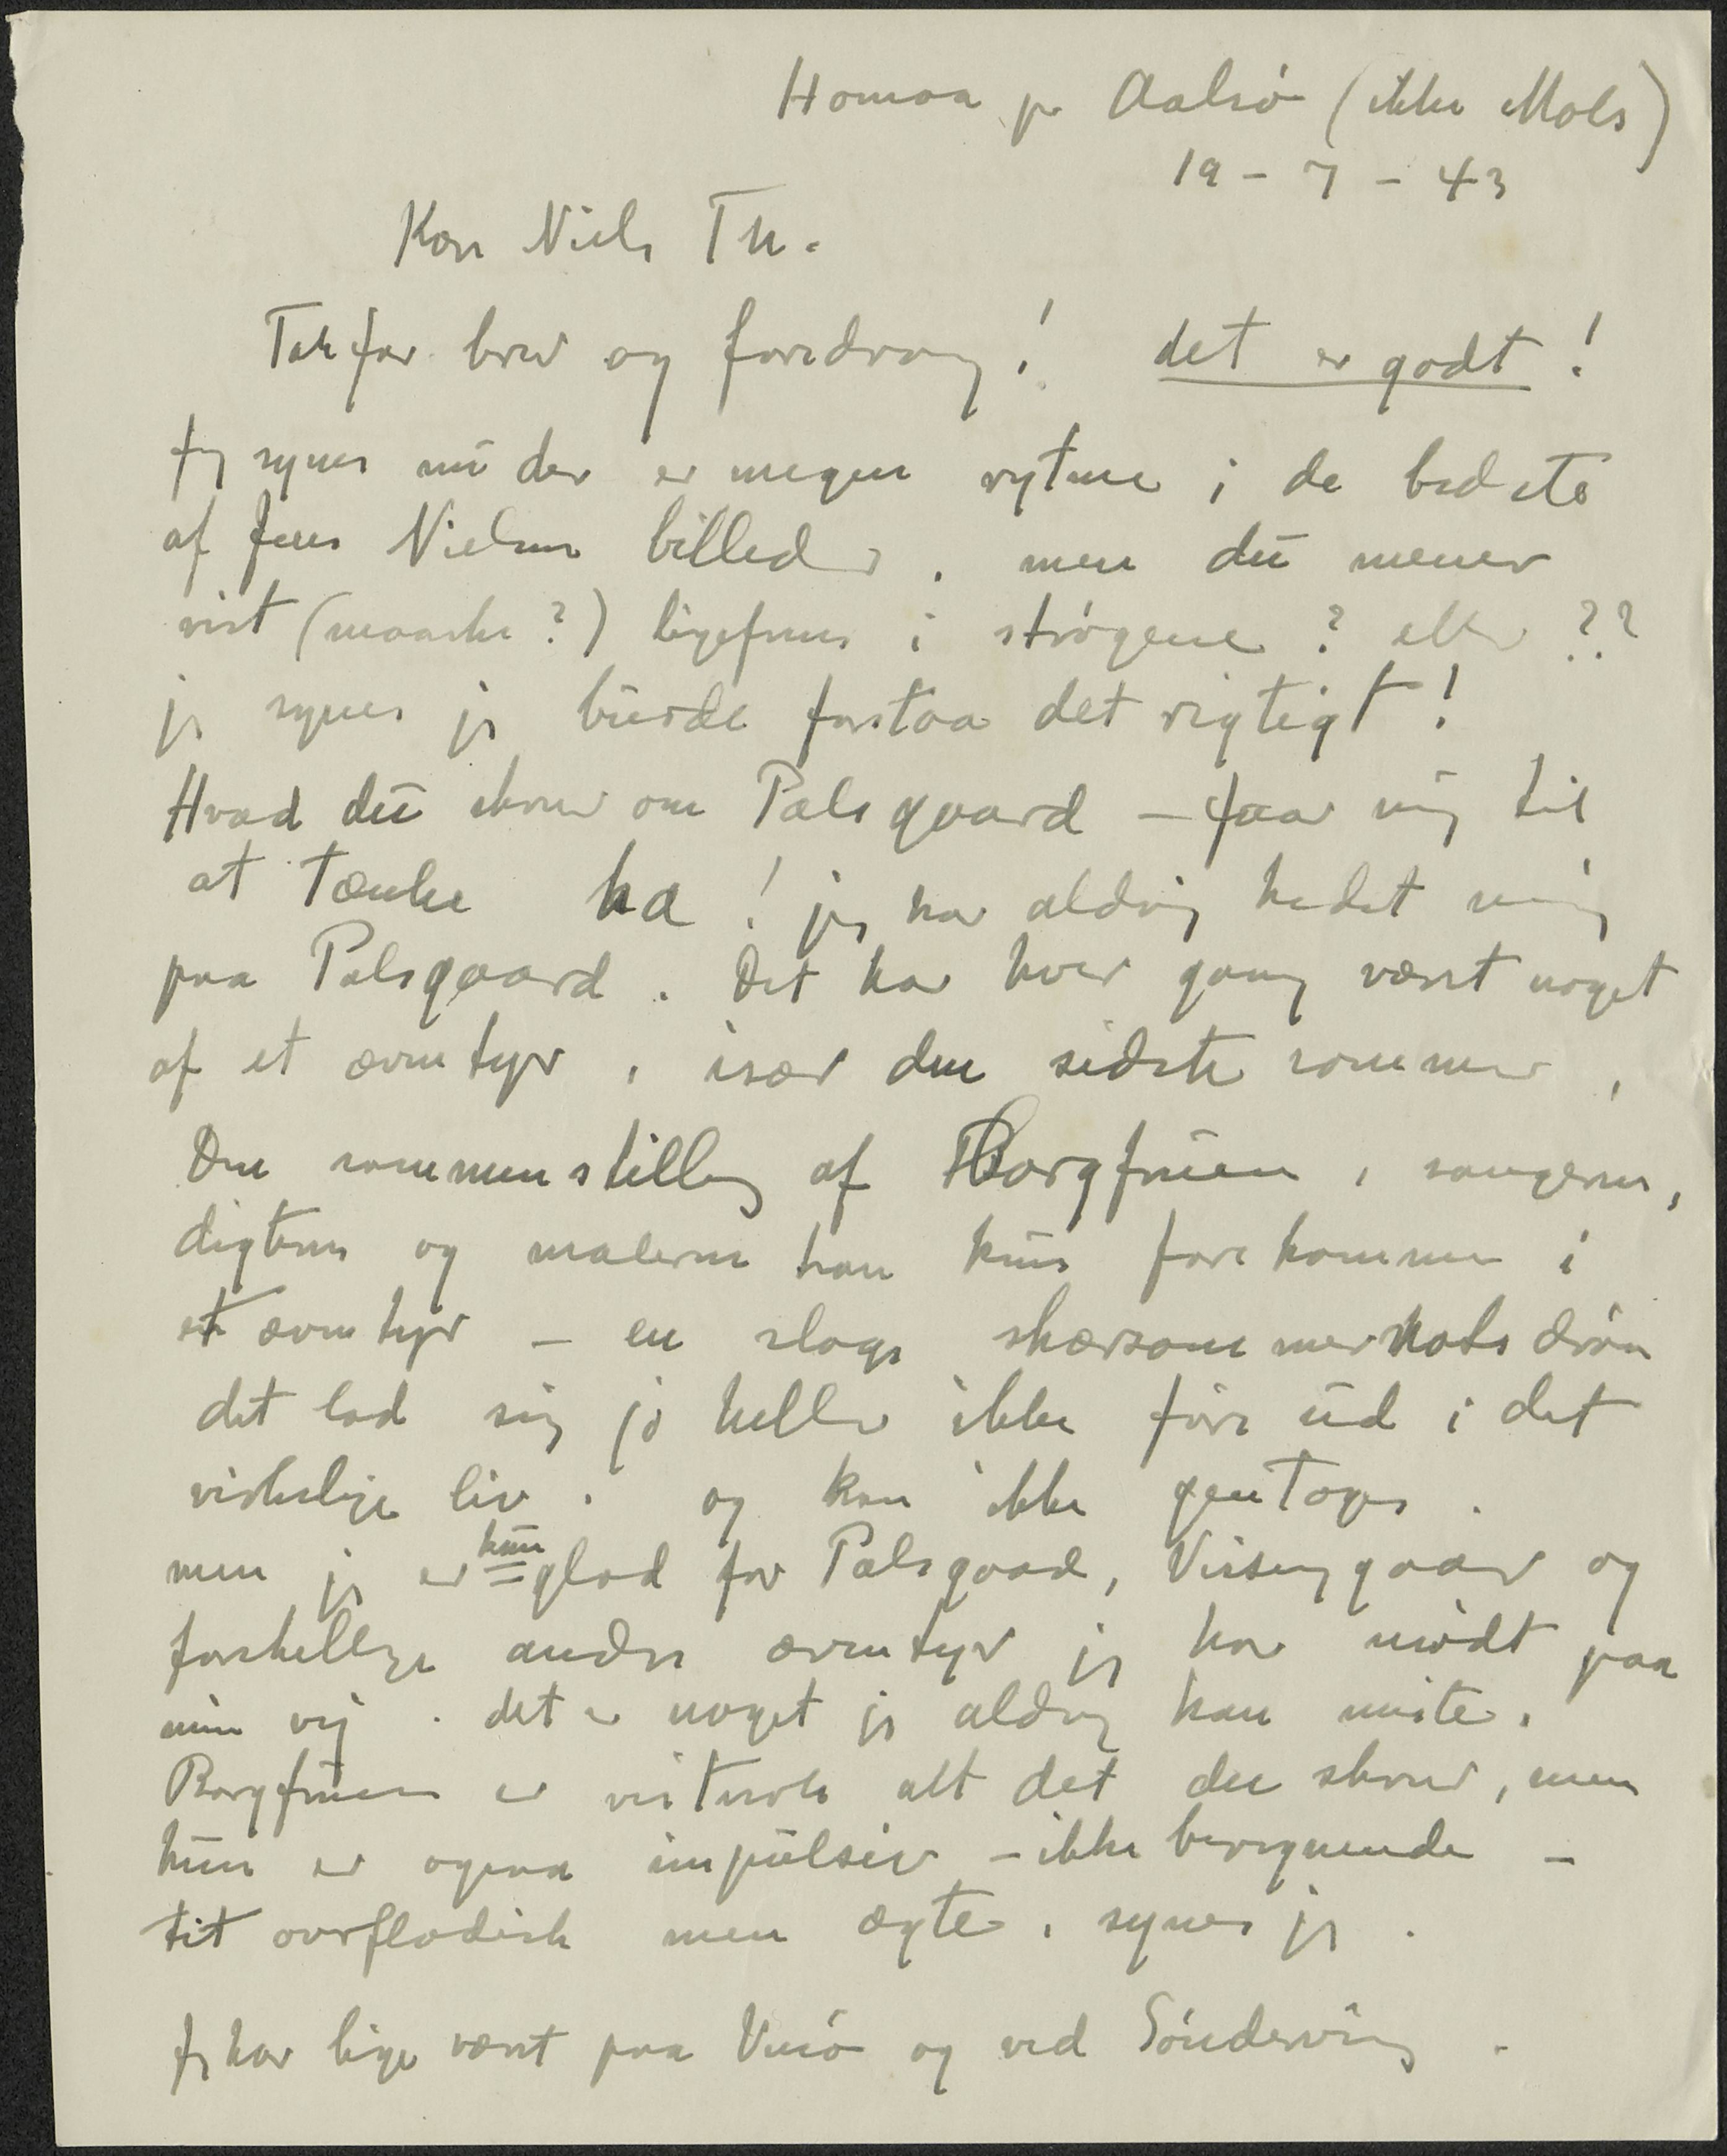 Homaa pr Aalsø (ikke Mols)
19 - 7 - 43
Kære Niels Th.
Tak for brev og foredrag! det er godt!
Jeg synes nu der er megen rytme i de bedste
af Jens Nielsens billeder, men du mener
vist (maaske?) ligefrem i strøgene? eller ??
jeg synes jeg burde forstaa det rigtigt!
Hvad du skrev om Palsgaard - faar mig til
at tænke ha! jeg har aldrig kedet mig
paa Palsgaard. Det har hver gang været noget
af et æventyr, især den sidste sommer,
Den sammenstilling af Borgfruen, sangeren,
digteren og maleren kan kun forekomme i
et æventyr - en slags skærsommernatsdrøm
det lod sig jo heller ikke føre ud i det
virkelige liv. og kan ikke gentages.
men jeg er kun glad for Palsgaard, Vissinggaard og
forskellige andre æventyr jeg har mødt paa
min vej. det er noget jeg aldrig kan miste.
Borgfruen er vistnok alt det du skrev, men
hun er ogsaa impulsiv - ikke beregnende -
tit overfladisk men ægte, synes jeg.
Jeg har lige været paa Venø og ved Søndervig.